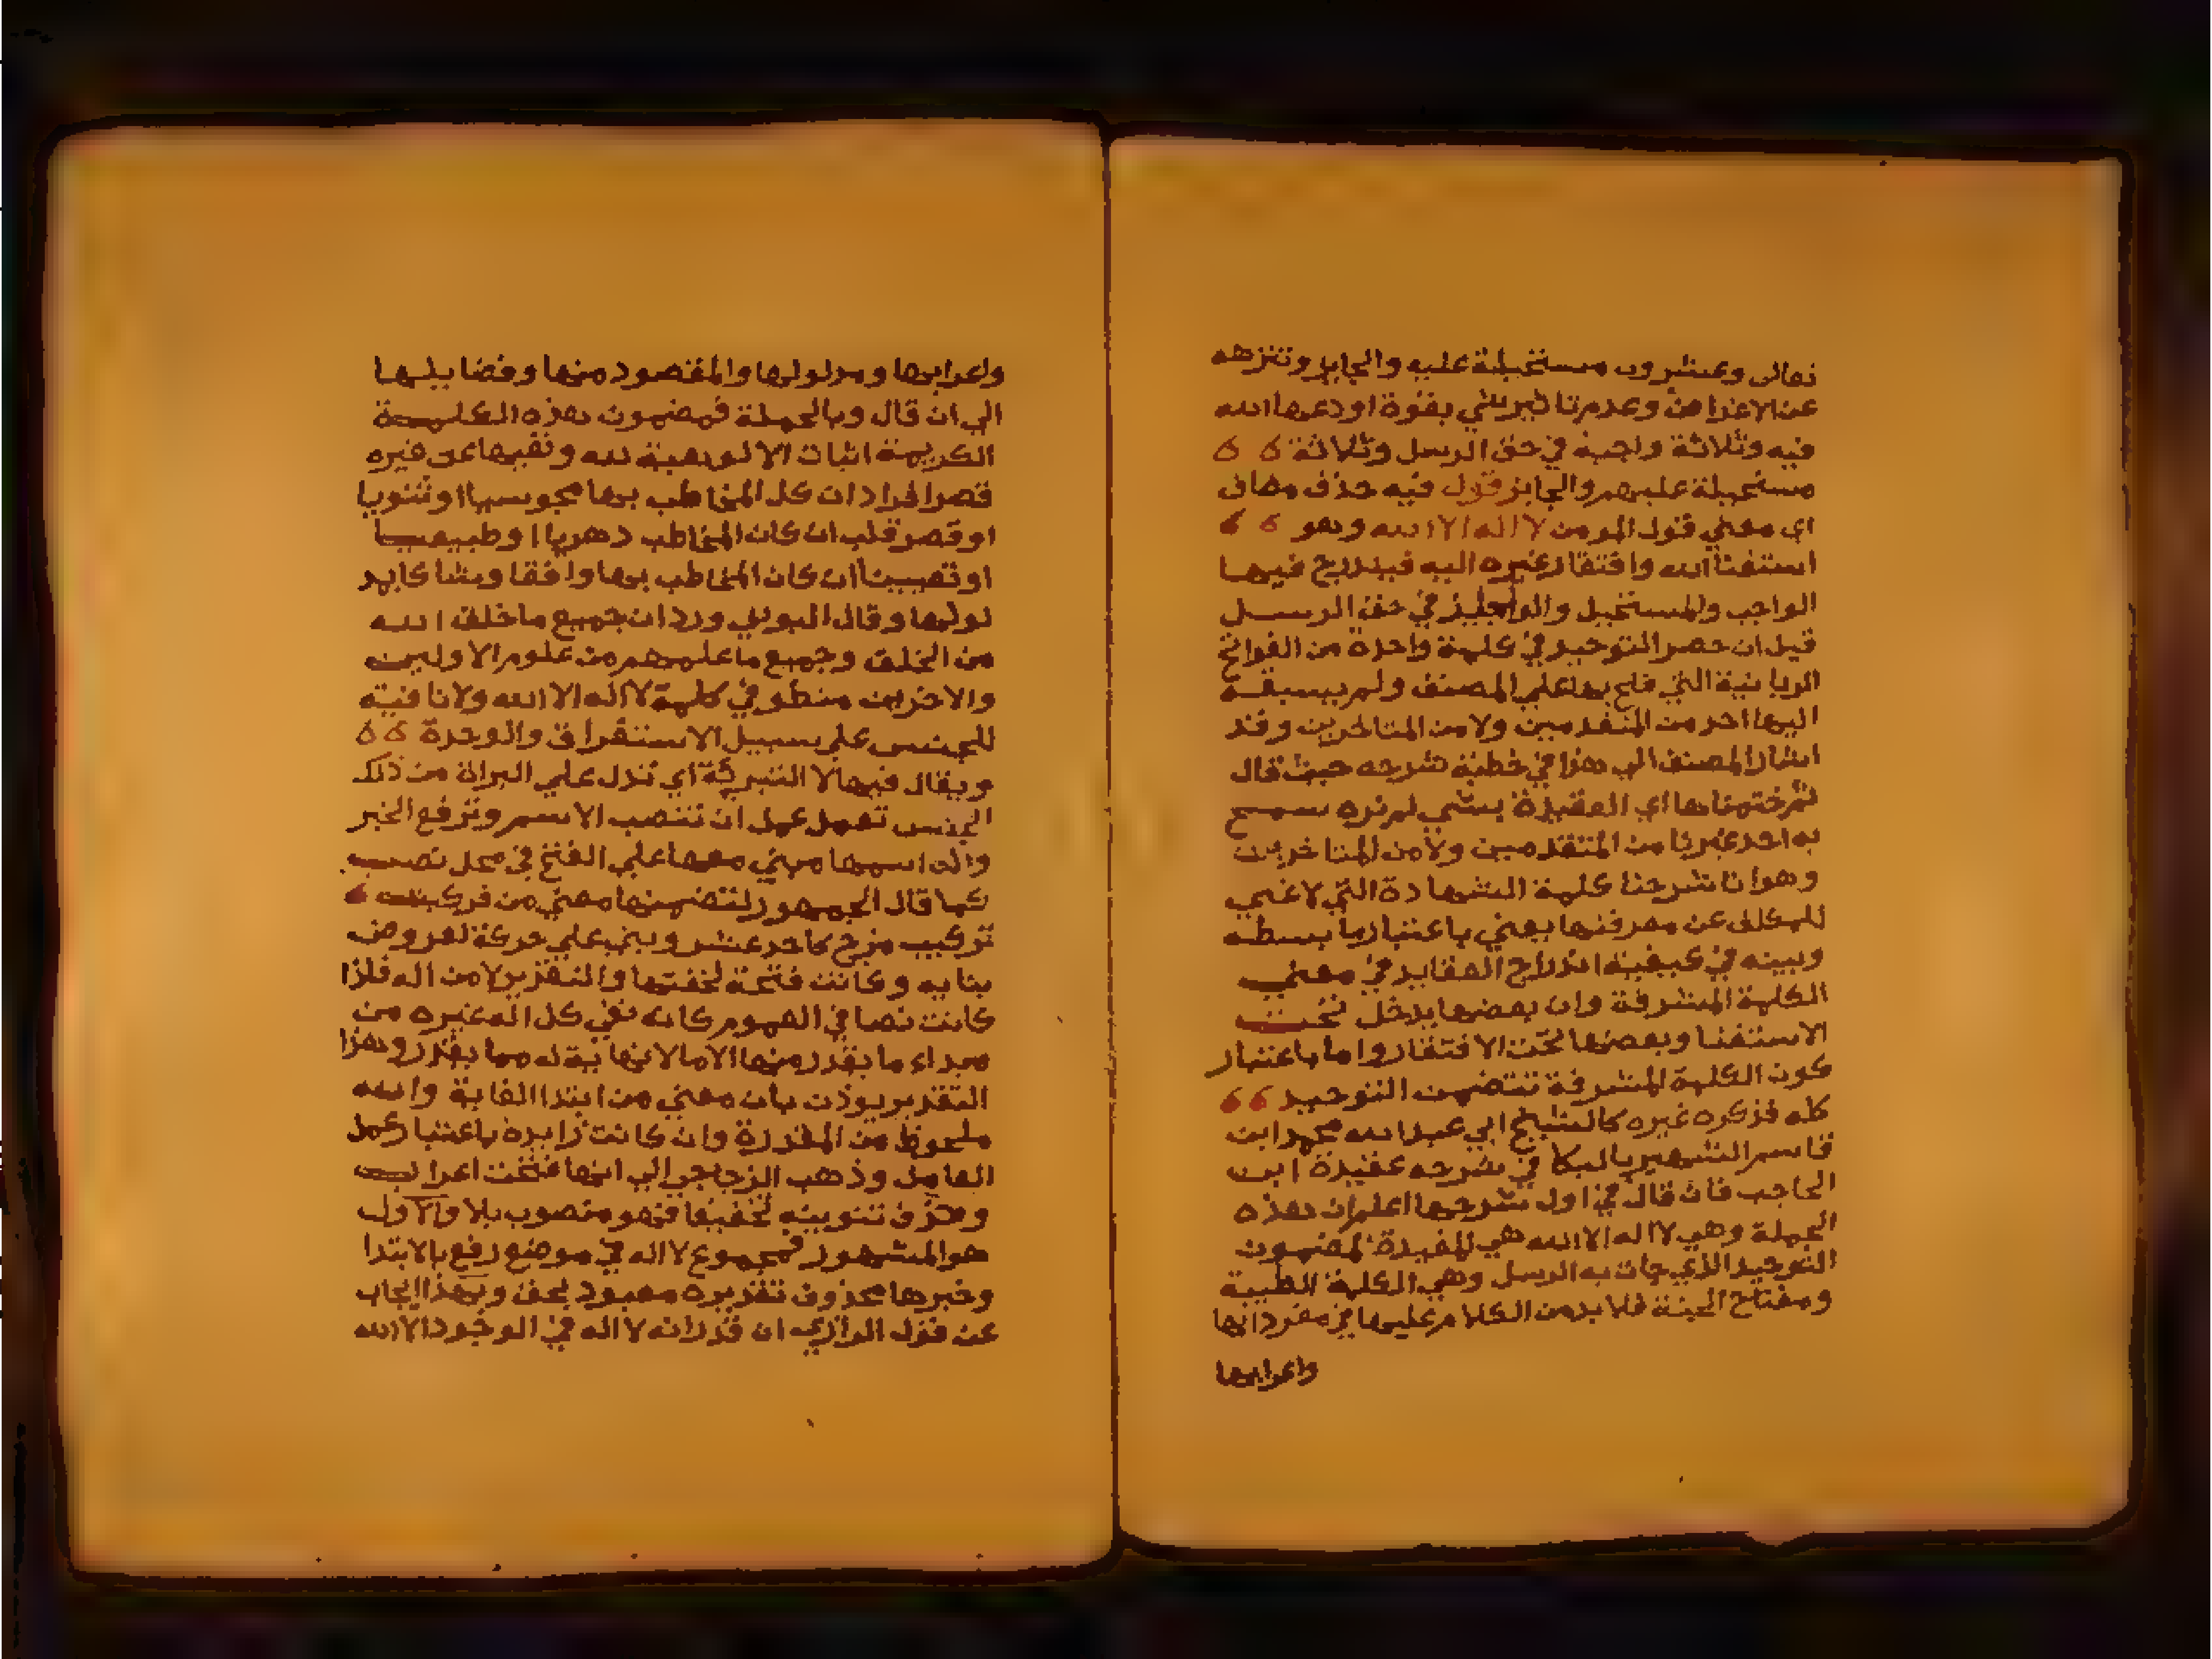 تعالى وعشرون مستحيلة عليه والجايز وتنزهه
عن الاغراض وعدم تاثير شي بقوة اودعها الله
فيه وثلاثة واجبة في حق الرسل وثلاثة
مستحيلة عليهم والجايز قول فيه حذف مضاف
اي معني قول المومن لا اله الا الله وهو
استغناالله وافتقار غيره اليه فيندرج فيها
الواجب والمستحيل والجايز في حق الرسل
قيل ان حصر التوحيد في كلمة واحدة من الفواتح
الربانية التي فتح بها علي المصنف ولم يسبقه
اليها احد من المتقدمين ولا من المتاخرين وقد
اشار المصنف الي هذا في خطبة شرحه حيث قال
ثم ختمناها اي العقيدة بشي لم نره سمح
به احد غيرنا من المتقدمين ولا من المتاخرين
وهو انا شرحنا كلمة الشهادة التي لا غني
للمكلف عن معرفتها يعني باعتبار ما بسطه
وبينه في كيفية اندراج العقايد في معني
الكلمة المشرفة وان بعضها يدخل تحت
الاستغنا وبعضها تحت الافتقار واما باعتبار
كون الكلمة المشرفة تتضمن التوحيد
كله فذكره غيره كالشيخ ابي عبد الله محمد ابن
قاسم الشهير بالبكا في شرحه عقيدة ابن
الحاجب فان قال في اول شرحها اعلم ان هذه
الجملة وهي لا اله الا الله هي المفيدة لمضمون
التوحيد الذي جات به الرسل وهي الكلمة الطيبة
ومفتاح الجنة فلا بد من الكلام عليها في مفرداتها
واعرابها
واعرابها ومدلولها والمقصود منها وفضايلها
الي ان قال وبالجملة فمضمون هذه الكلمة
الكريمة اثبات الالوهية لله ونفيها عن غيره
قصر افراد ان كل المخاطب بها مجوسيا او ثنويا
او قصر قلب ان كان المخاطب دهريا او طبيعيا
او تعيينا ان كان المخاطب بها وافقا وشاكا بمد
لولها وقال البوني ورد ان جميع ما خلق الله
من الخلق وجميع ما علمهم من علوم الاولين
والاخرين منطو في كلمة لا اله الا الله ولا نافية
للجنس علي سبيل الاستغراق والوحدة
ويقال فيها لا التبرية اي تدل علي البراة من ذلك
الجنس تعمل عمل ان تنصب الاسم وترفع الخبر
واله اسمها مبني معها علي الفتح في محل نصب
كما قال الجمهور لتضمنها معني من فركبت
تركيب مزج كاحد عشر وبني علي حركة لعروض
بنايه وكانت فتحة لخفتها والتقدير لا من اله فلذا
كانت نصا في العموم كانه نفي كل اله غيره من
مبداء ما يقدر منها الا ما لا نهاية له مما يقدر وهذا
التقدير يوذن بان معني من ابتدا الغاية والله
ملحوظ من المقدرة وان كانت زايدة باعتبار عمل
العامل وذهب الزجاجي الي انها فتحت اعراب
وحذف تنوينه تخفيفا فهو منصوب بلا والاول
هو المشهور فمجموع لا اله في موضع رفع بالابتدا
وخبرها محذوف تقديره معبود بحق وبهذا يجاب
عن قول الرازي ان قدرانه لا اله في الوجود الا الله